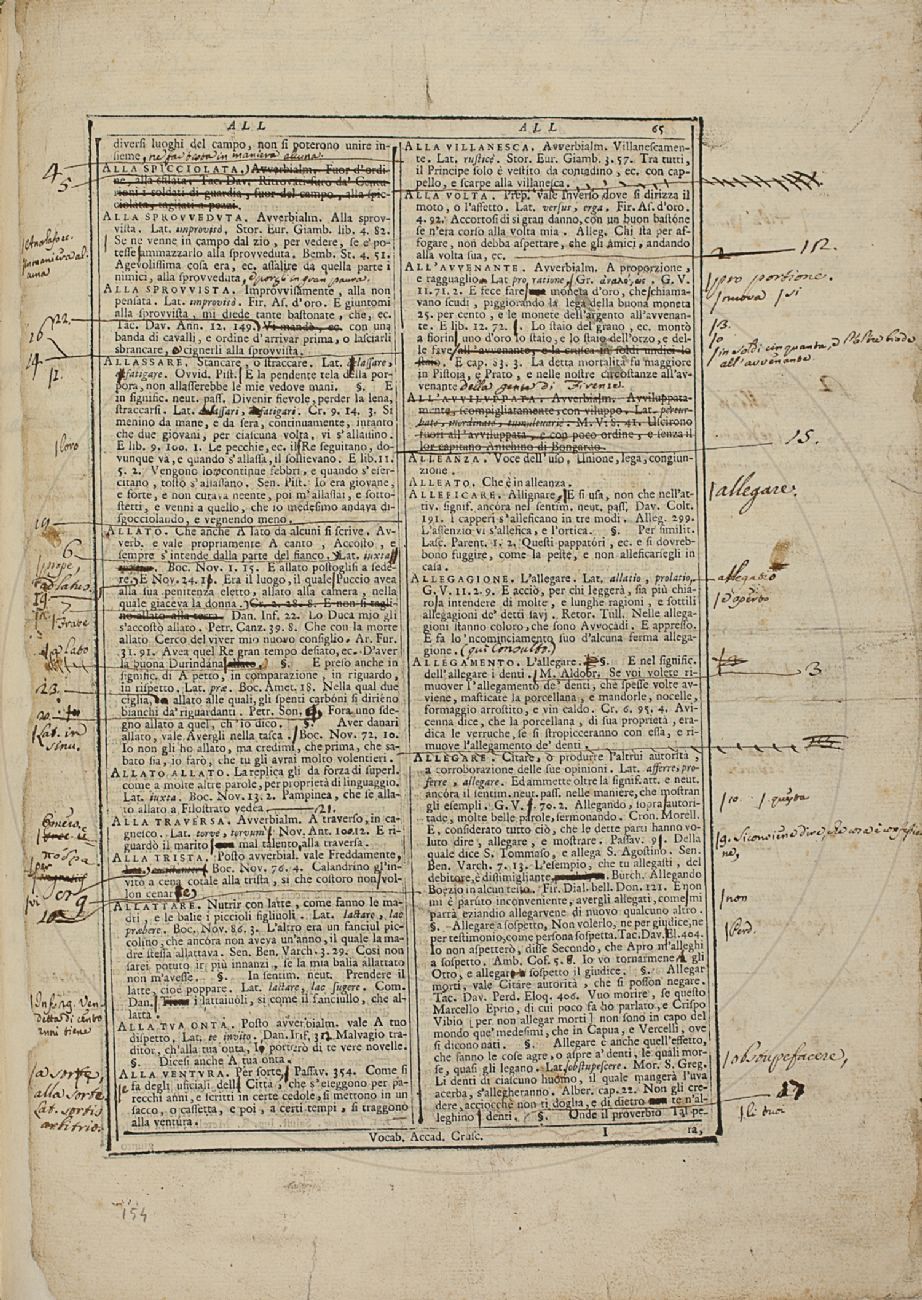 ALL
ALL 65
diversi luoghi del campo, non si poterono unire in-
sieme,
ALLA SPICCIOLATA. Avverbialm. Fuor d'ordi-
ne, alla sfilata. Tac. Dav. Ritrovati furo da' Centu-
rioni i soldati di guardia, fuor del campo, alla spic-
ciolata, tagliati a pezzi.
ALLA SPROVVEDUTA. Avverbialm. Alla sprov-
vista. Lat. improvisò. Stor. Eur. Giamb. lib. 4. 82.
Se ne venne in campo dal zio, per vedere, se e' po-
tesse ammazzarlo alla sprovveduta. Bemb. St. 4. 51.
Agevolissima cosa era, ec. assalire da quella parte i
nimici, alla sprovveduta,
ALLA SPROVVISTA. Improvvisamente, alla non
pensata. Lat. improvisò. Fir. As. d'oro. E giuntomi
alla sprovvista, mi diede tante bastonate, che, ec.
Tac. Dav. Ann. 12. 149. Vi mandò, ec. con una
banda di cavalli, e ordine d'arrivar prima, o lasciarli
sbrancare, o cignerli alla sprovvista.
ALLASSARE. Stancare, o straccare. Lat. lassare,
fatigare. Ovvid. Pist. E la pendente tela della por-
pora, non allasserebbe le mie vedove mani. §. E
in signific. neut. pass. Divenir fievole, perder la lena,
straccarsi. Lat. lassari, fatigari. Cr. 9. 14. 3. Si
menino da mane, e da sera, continuamente, intanto
che due giovani, per ciascuna volta, vi s'allassino.
E lib. 9. 100. 1. Le pecchie, ec. il Re seguitano, do-
vunque va, e quando s'allassa, il sollievano. E lib. 11.
5. 2. Vengono lor continue febbri, e quando s'eser-
citano, tosto s'allassano. Sen. Pist. Io era giovane,
e forte, e non curava neente, poi m'allassai, e sotto-
stetti, e venni a quello, che io medesimo andava di-
sgocciolando, e vegnendo meno.
ALLATO. Che anche A lato da alcuni si scrive. Av-
verb. e vale propriamente A canto, Accosto, e
sempre s'intende dalla parte del fianco. Lat. iuxta
Boc. Nov. 1. 15. E allato postoglisi a sede-
re. E Nov. 24. 10. Era il luogo, il quale Puccio avea
alla sua penitenza eletto, allato alla camera, nella
quale giaceva la donna. Cr. 2. 28. 8. E non si tagli-
no allato alla terra. Dan. Inf. 22. Lo Duca mio gli
s'accostò allato. Petr. Canz. 39. 8. Che con la morte
allato Cerco del viver mio nuovo consiglio. Ar. Fur.
31. 91. Avea quel Re gran tempo desiato, ec. D'aver
la buona Durindana allato. §. E preso anche in
signific. di A petto, in comparazione, in riguardo,
in rispetto. Lat. præ. Boc. Amet. 18. Nella qual due
ciglia, allato alle quali, gli spenti carboni si dirieno
bianchi da' riguardanti. Petr. Son. Fora uno sde-
gno allato a quel, ch'io dico. §. Aver danari
allato, vale Avergli nella tasca. Boc. Nov. 72. 10.
Io non gli ho allato, ma credimi, che prima, che sa-
bato sia, io farò, che tu gli avrai molto volentieri.
ALLATO ALLATO. La replica gli dà forza di superl.
come a molte altre parole, per proprietà di linguaggio.
Lat. iuxta. Boc. Nov. 13. 2. Pampinea, che se alla-
to allato a Filostrato vedea 21.
ALLA TRAVERSA. Avverbialm. A traverso, in ca-
gnesco. Lat. torvè, torvum. Nov. Ant. 100. 12. E ri-
guardò il marito mal talento, alla traversa.
ALLA TRISTA. Posto avverbial. vale Freddamente,
Boc. Nov. 76. 4. Calandrino gl'in-
vitò a cena cotale alla trista, sì che costoro non vol-
lon cenar
ALLATTARE. Nutrir con latte, come fanno le ma-
dri, e le balie i piccioli figliuoli. Lat. lactare, lac
præbere. Boc. Nov. 86. 3. L'altro era un fanciul pic-
colino, che ancora non aveva un'anno, il quale la ma-
dre stessa allattava. Sen. Ben. Varch. 3. 29. Così non
sarei potuto ir più innanzi, se la mia balia allattato
non m'avesse. §. In sentim. neut. Prendere il
latte, cioè poppare. Lat. lactare, lac sugere. Com.
Dan. i lattaiuoli, sì come il fanciullo, che al-
latta.
ALLA TUA ONTA. Posto avverbialm. vale A tuo
dispetto. Lat. te invito. Dan. Inf. 31. Malvagio tra-
ditor, ch'alla tua onta, Io porterò di te vere novelle.
§. Dicesi anche A tua onta.
ALLA VENTURA. Per sorte. Passav. 354. Come si
fa degli uficiali della Città, che s'eleggono per pa-
recchi anni, e scritti in certe cedole, si mettono in un
sacco, o cassetta, e poi, a certi tempi, si traggono
alla ventura.
ALLA VILLANESCA. Avverbialm. Villanescamen-
te. Lat. rusticè. Stor. Eur. Giamb. 3. 57. Tra tutti,
il Principe solo è vestito da contadino, ec. con cap-
pello, e scarpe alla villanesca.
ALLA VOLTA. Prep. vale Inverso dove si dirizza il
moto, o l'affetto. Lat. versus, erga. Fir. As. d'oro.
4. 92. Accortosi di sì gran danno, con un buon bastone
se n'era corso alla volta mia. Alleg. Chi sta per af-
fogare, non debba aspettare, che gli amici, andando
alla volta sua, ec.
ALL'AVVENANTE. Avverbialm. A proporzione,
e ragguaglio. Lat. pro ratione. Gr. G. V.
11. 71. 2. E fece fare moneta d'oro, che chiama-
vano scudi, piggiorando la lega della buona moneta
25. per cento, e le monete dell'argento all'avvenan-
te. E lib. 12. 72. Lo staio del grano, ec. montò
a fiorin uno d'oro lo staio, e lo staio dell'orzo, e del-
le fave all'avvenante, e la crusca in soldi undici lo
staio. E cap. 83. 3. La detta mortalità fu maggiore
in Pistoia, e Prato, e nelle nostre circostanze all'av-
venante della gente di Firenze.
ALL'AVVILUPPATA. Avverbialm. Avviluppata-
mente, scompigliatamente, con viluppo. Lat. pertur-
batè, inordinatè, tumultuariè. M. V. 8. 41. Uscirono
fuori all'avviluppata, e con poco ordine, e senza il
lor capitano Antichino di Bongardo.
ALLEANZA. Voce dell'uso, Unione, lega, congiun-
zione.
ALLEATO. Che è in alleanza.
ALLEFICARE. Allignare. E si usa, non che nell'at-
tiv. signif. ancora nel sentim. neut. pass. Dav. Colt.
191. I capperi s'alleficano in tre modi. Alleg. 299.
L'assenzio vi s'allefica, e l'ortica. §. Per similit.
Lasc. Parent. 1. 2. Questi pappatori, ec. e' si dovreb-
bono fuggire, come la peste, e non alleficarsegli in
casa.
ALLEGAGIONE. L'allegare. Lat. allatio, prolatio.
G. V. 11. 2. 9. E acciò, per chi leggerà, sia più chia-
ro, sa intendere di molte, e lunghe ragioni, e sottili
allegagioni de' detti savj. Retor. Tull. Nelle allega-
gioni stanno coloro, che sono Avvocadi. E appresso.
E fa lo 'ncominciamento suo d'alcuna ferma allega-
gione.
ALLEGAMENTO. L'allegare. §. E nel signific.
dell'allegare i denti. M. Aldobr. Se voi volete ri-
muover l'allegamento de' denti, che spesse volte av-
viene, masticate la porcellana, e mandorle, nocelle,
formaggio arrostito, e vin caldo. Cr. 6. 95. 4. Avi-
cenna dice, che la porcellana, di sua proprietà, era-
dica le verruche, se si stropicceranno con essa, e ri-
muove l'allegamento de' denti.
ALLEGARE. Citare, o produrre l'altrui autorità,
a corroborazione delle sue opinioni. Lat. afferre, pro-
ferre, allegare. Ed ammette oltre la signif. att. e neut.
ancora il sentim. neut. pass. nelle maniere, che mostran
gli esempli. G. V. 70. 2. Allegando, sopra autori-
tade, molte belle parole, sermonando. Cron. Morell.
E, considerato tutto ciò, che le dette parti hanno vo-
luto dire, allegare, e mostrare. Passav. 9. Della
quale dice S. Tommaso, e allega S. Agostino. Sen.
Ben. Varch. 7. 12. L'esempio, che tu allegasti, del
debitore, è dissimigliante Burch. Allegando
Boezio in alcun testo. Fir. Dial. bell. Don. 121. E non
mi è paruto inconveniente, avergli allegati, come mi
parrà eziandio allegarvene di nuovo qualcuno altro.
§. Allegare a sospetto, Non volerlo, nè per giudice, nè
per testimonio, come persona sospetta. Tac. Dav. El. 404.
Io non aspetterò, disse Secondo, che Apro m'alleghi
a sospetto. Amb. Cof. 5. 8. Io vo tornarmene a gli
Otto, e allegar a sospetto il giudice. §. Allegar
morti, vale Citare autorità, che si posson negare.
Tac. Dav. Perd. Eloq. 406. Vuo morire, se questo
Marcello Eprio, di cui poco fa ho parlato, e Crispo
Vibio [per non allegar morti] non sono in capo del
mondo que' medesimi, che in Capua, e Vercelli, ove
si dicono nati. §. Allegare è anche quell'effetto,
che fanno le cose agre, o aspre a' denti, le quali mor-
se, quasi gli legano. Lat. obstupescere. Mor. S. Greg.
Li denti di ciascuno huomo, il quale mangerà l'uva
acerba, s'allegheranno. Alber. cap. 22. Non gli cre-
dere, acciocchè non ti doglia, e di dietro te n'al-
leghino i denti. §. Onde il proverbio Tal pe-
Vocab. Accad. Crusc. I ra,
4
5
22.
16
14.
12.
loro
19
6
23.
9
10
Lat. in
sinu.
a sorte,
alla sorte
Lat. sortis
arbitrio.
112.
pro portione.
nuova si
13.
all'avvenante
15.
allegare.
allegato
3
non
obstupefacere,
27
li buoi
154